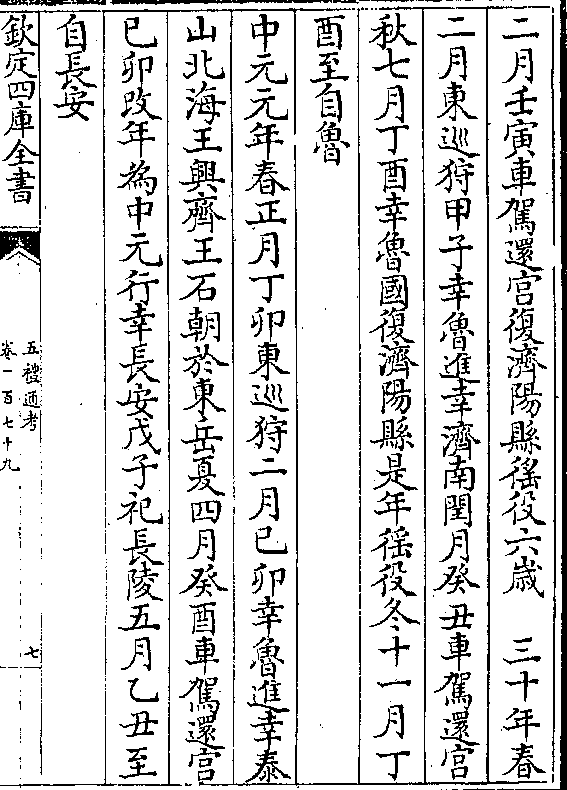 二月壬寅車駕還宮復濟陽縣徭役六歲　三十年春
二月東巡狩甲子幸魯進幸濟南閏月癸丑車駕還宮
秋七月丁酉幸魯國復濟陽縣是年徭役冬十一月丁
酉至自魯
中元元年春正月丁卯東巡狩二月己卯幸魯進幸泰
山北海王興齊王石朝於東岳夏四月癸酉車駕還宮
己卯改年為中元行幸長安戊子祀長陵五月乙丑至
自長安
欽定四庫全書
五禮通考
卷一百七十九
七